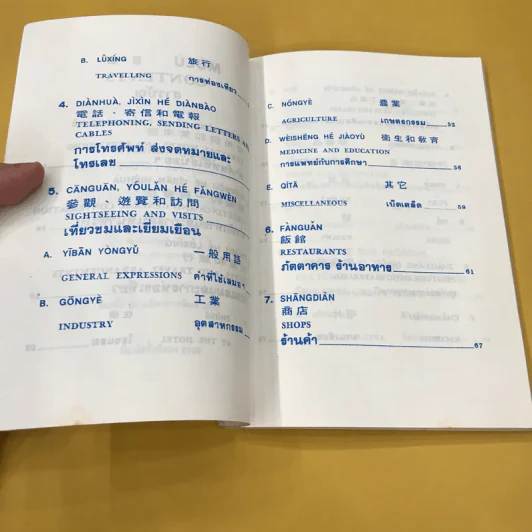 B. LǙXÍNG 旅行
TRAVELLING การท่องเที่ยว
4. DIÀNHUÀ, JÌXÌN HÉ DIÀNBÀO
電話、寄信和電報
TELEPHONING, SENDING LETTERS AND
CABLES
การโทรศัพท์ ส่งจดหมายและ
โทรเลข
5. CĀNGUĀN, YÓULǍN HÉ FǍNGWÈN
參觀、遊覽和訪問
SIGHTSEEING AND VISITS
เที่ยวชมและเยี่ยมเยือน
A. YĪBĀN YÒNGYǓ 一般用語
GENERAL EXPRESSIONS คำที่ใช้เสมอ ๆ
B. GŌNGYÈ 工業
INDUSTRY อุตสาหกรรม
C. NÓNGYÈ 農業
AGRICULTURE เกษตรกรรม 52
D. WÈISHĒNG HÉ JIÀOYÙ 衛生和教育
MEDICINE AND EDUCATION
การแพทย์กับการศึกษา 56
E. QÍTĀ 其它
MISCELLANEOUS เบ็ดเตล็ด 59
6. FÀNGUǍN
飯館
RESTAURANTS
ภัตตาคาร ร้านอาหาร 61
7. SHĀNGDIÀN
商店
SHOPS
ร้านค้า 67